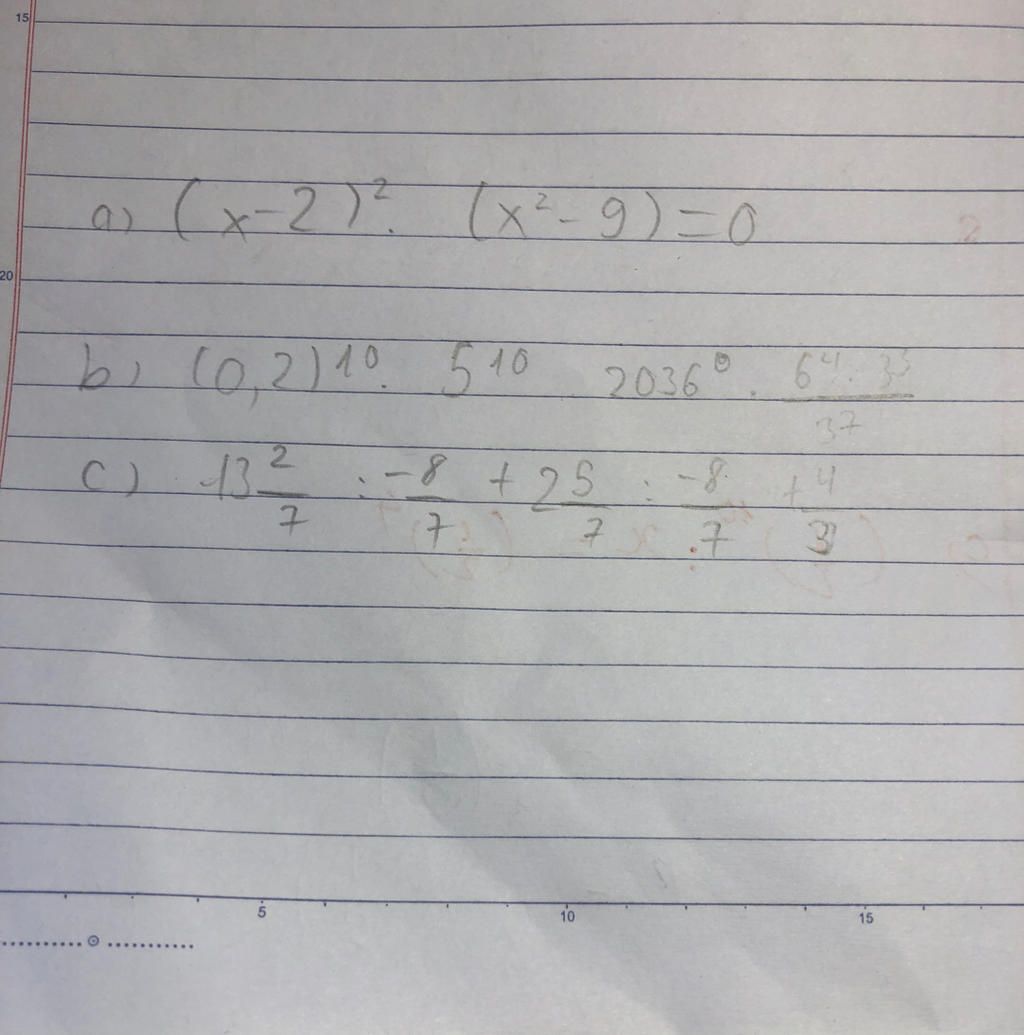 15
a) (x-2)². (x²-9)=0
20
b) (0,2)¹⁰. 5¹⁰ 2036⁰. 6⁴.3⁵/37
c) 13 2/7 : -8/7 + 2 5/7 : -8/7 + 4/3
5 10 15